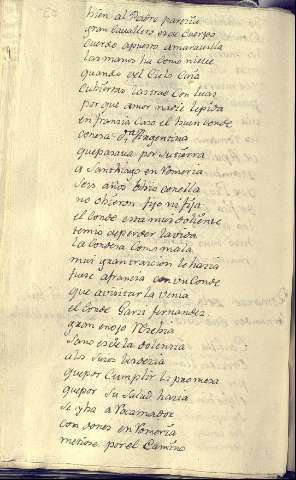 bien al Padre parecia
gran cavallero es de cuerpo
cuerdo apuesto a maravilla
las manos ha como nieve
quando del Cielo Caia
Cubiertas las trae con luas
por que amor nadie le pida
en francia caso el buen conde
con esa dª Argentina
que pasava por su tierra
a Santhiago en Romeria
seis años vivio con ella
no obieron fijo ni fija
el conde esta mui doliente
temio de perder la vida
la Condesa Como mala
mui gran traicion le hazia
fuese a francia con un Conde
que a visitar la venia
el Conde Garzi fernandez
gran enojo Recebia
sano es de la dolencia
a los suyos les dezia
que por Cumplir la promesa
que por su salud hazia
se yba a Rocamador
con dones en Romeria
metiose por el Camino